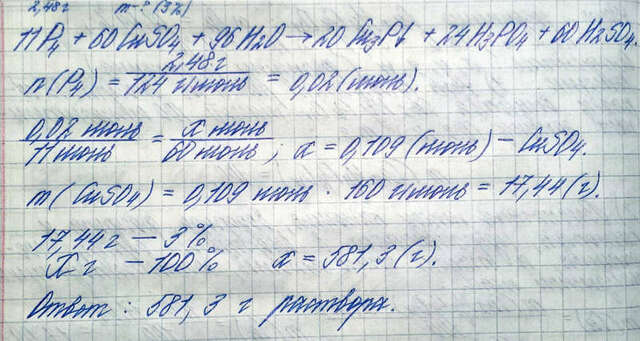 2,48 г m-? (3%)
11P₄ + 60CuSO₄ + 96H₂O → 20Cu₃P + 24H₃PO₄ + 60H₂SO₄
n(P₄) = 2,48 г / 124 г/моль = 0,02 (моль).
0,02 моль / 11 моль = x моль / 60 моль ; x = 0,109 (моль) – CuSO₄.
m(CuSO₄) = 0,109 моль · 160 г/моль = 17,44 (г).
17,44 г — 3%
X г — 100% x = 581,3 (г).
Ответ : 581,3 г раствора.